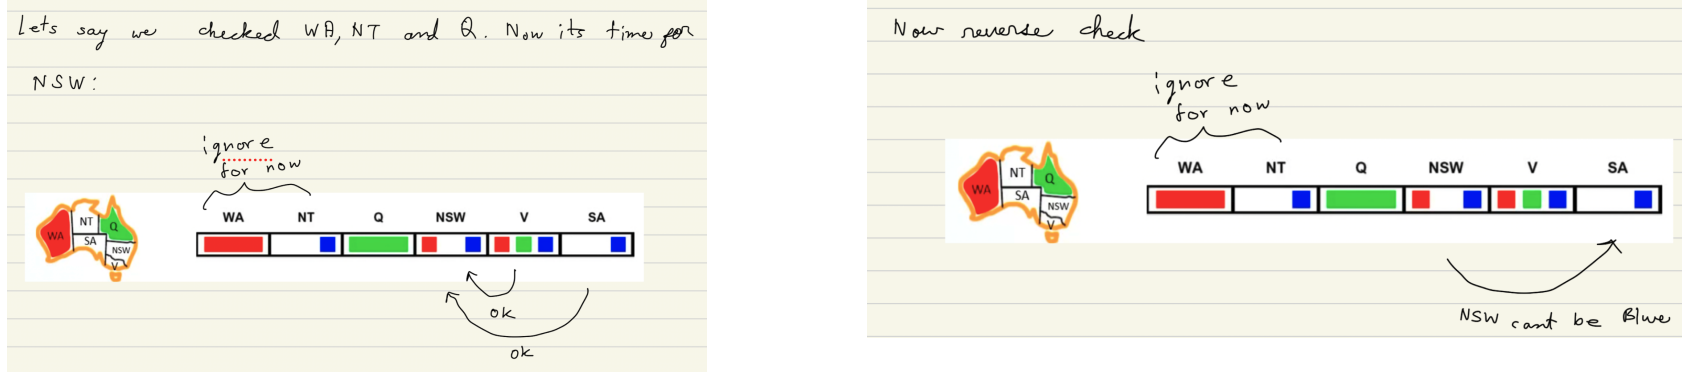 Lets say we checked WA, NT and Q. Now its time for
NSW:
ignore
for now
WA NT Q NSW V SA
WA NT Q SA NSW V
ok
ok
Now reverse check
ignore
for now
WA NT Q NSW V SA
WA NT Q SA NSW V
NSW cant be Blue